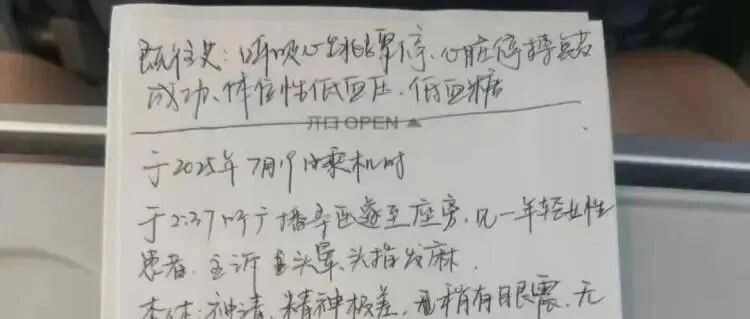 既往史：呼吸心跳骤停、心脏停搏复苏
成功、体位性低血压、低血糖
开口OPEN
于2025年7月19日乘机时
于2:37呼广播寻医遂至座旁，见一年轻女性
患者，主诉头晕、头指发麻.
查体：神清，精神极差，稍有眼震，无